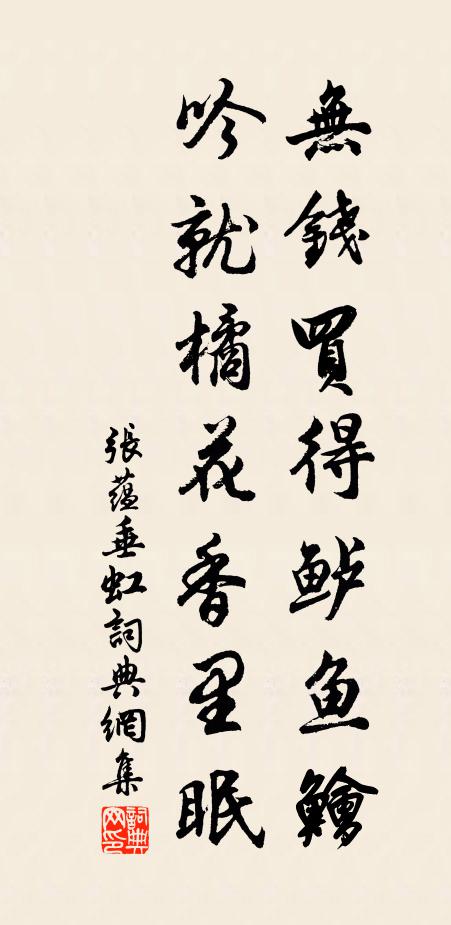 無錢買得鲈鱼鱠
吟就橘花香里眠
張蘊垂虹詞典網集
詞典网印